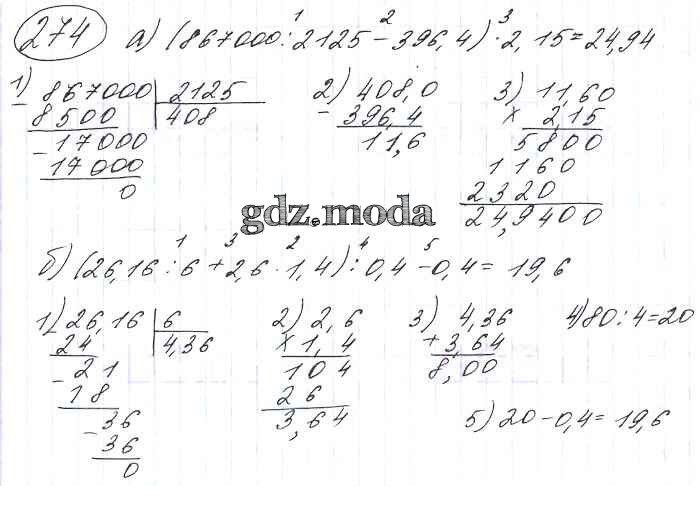 274 а) (867000 : 2125 − 396,4) · 2,15 = 24,94
1 2 3
1) 867000 | 2125
− 8500 | 408
− 17000
17000
0
2) 408,0
− 396,4
11,6
3) 11,60
× 2,15
5800
1160
2320
24,9400
gdz.moda
б) (26,16 : 6 + 2,6 · 1,4) : 0,4 − 0,4 = 19,6
1 3 2 4 5
1) 26,16 | 6
24 | 4,36
− 21
18
− 36
36
0
2) 2,6
× 1,4
104
26
3,64
3) 4,36
+ 3,64
8,00
4) 80 : 4 = 20
5) 20 − 0,4 = 19,6